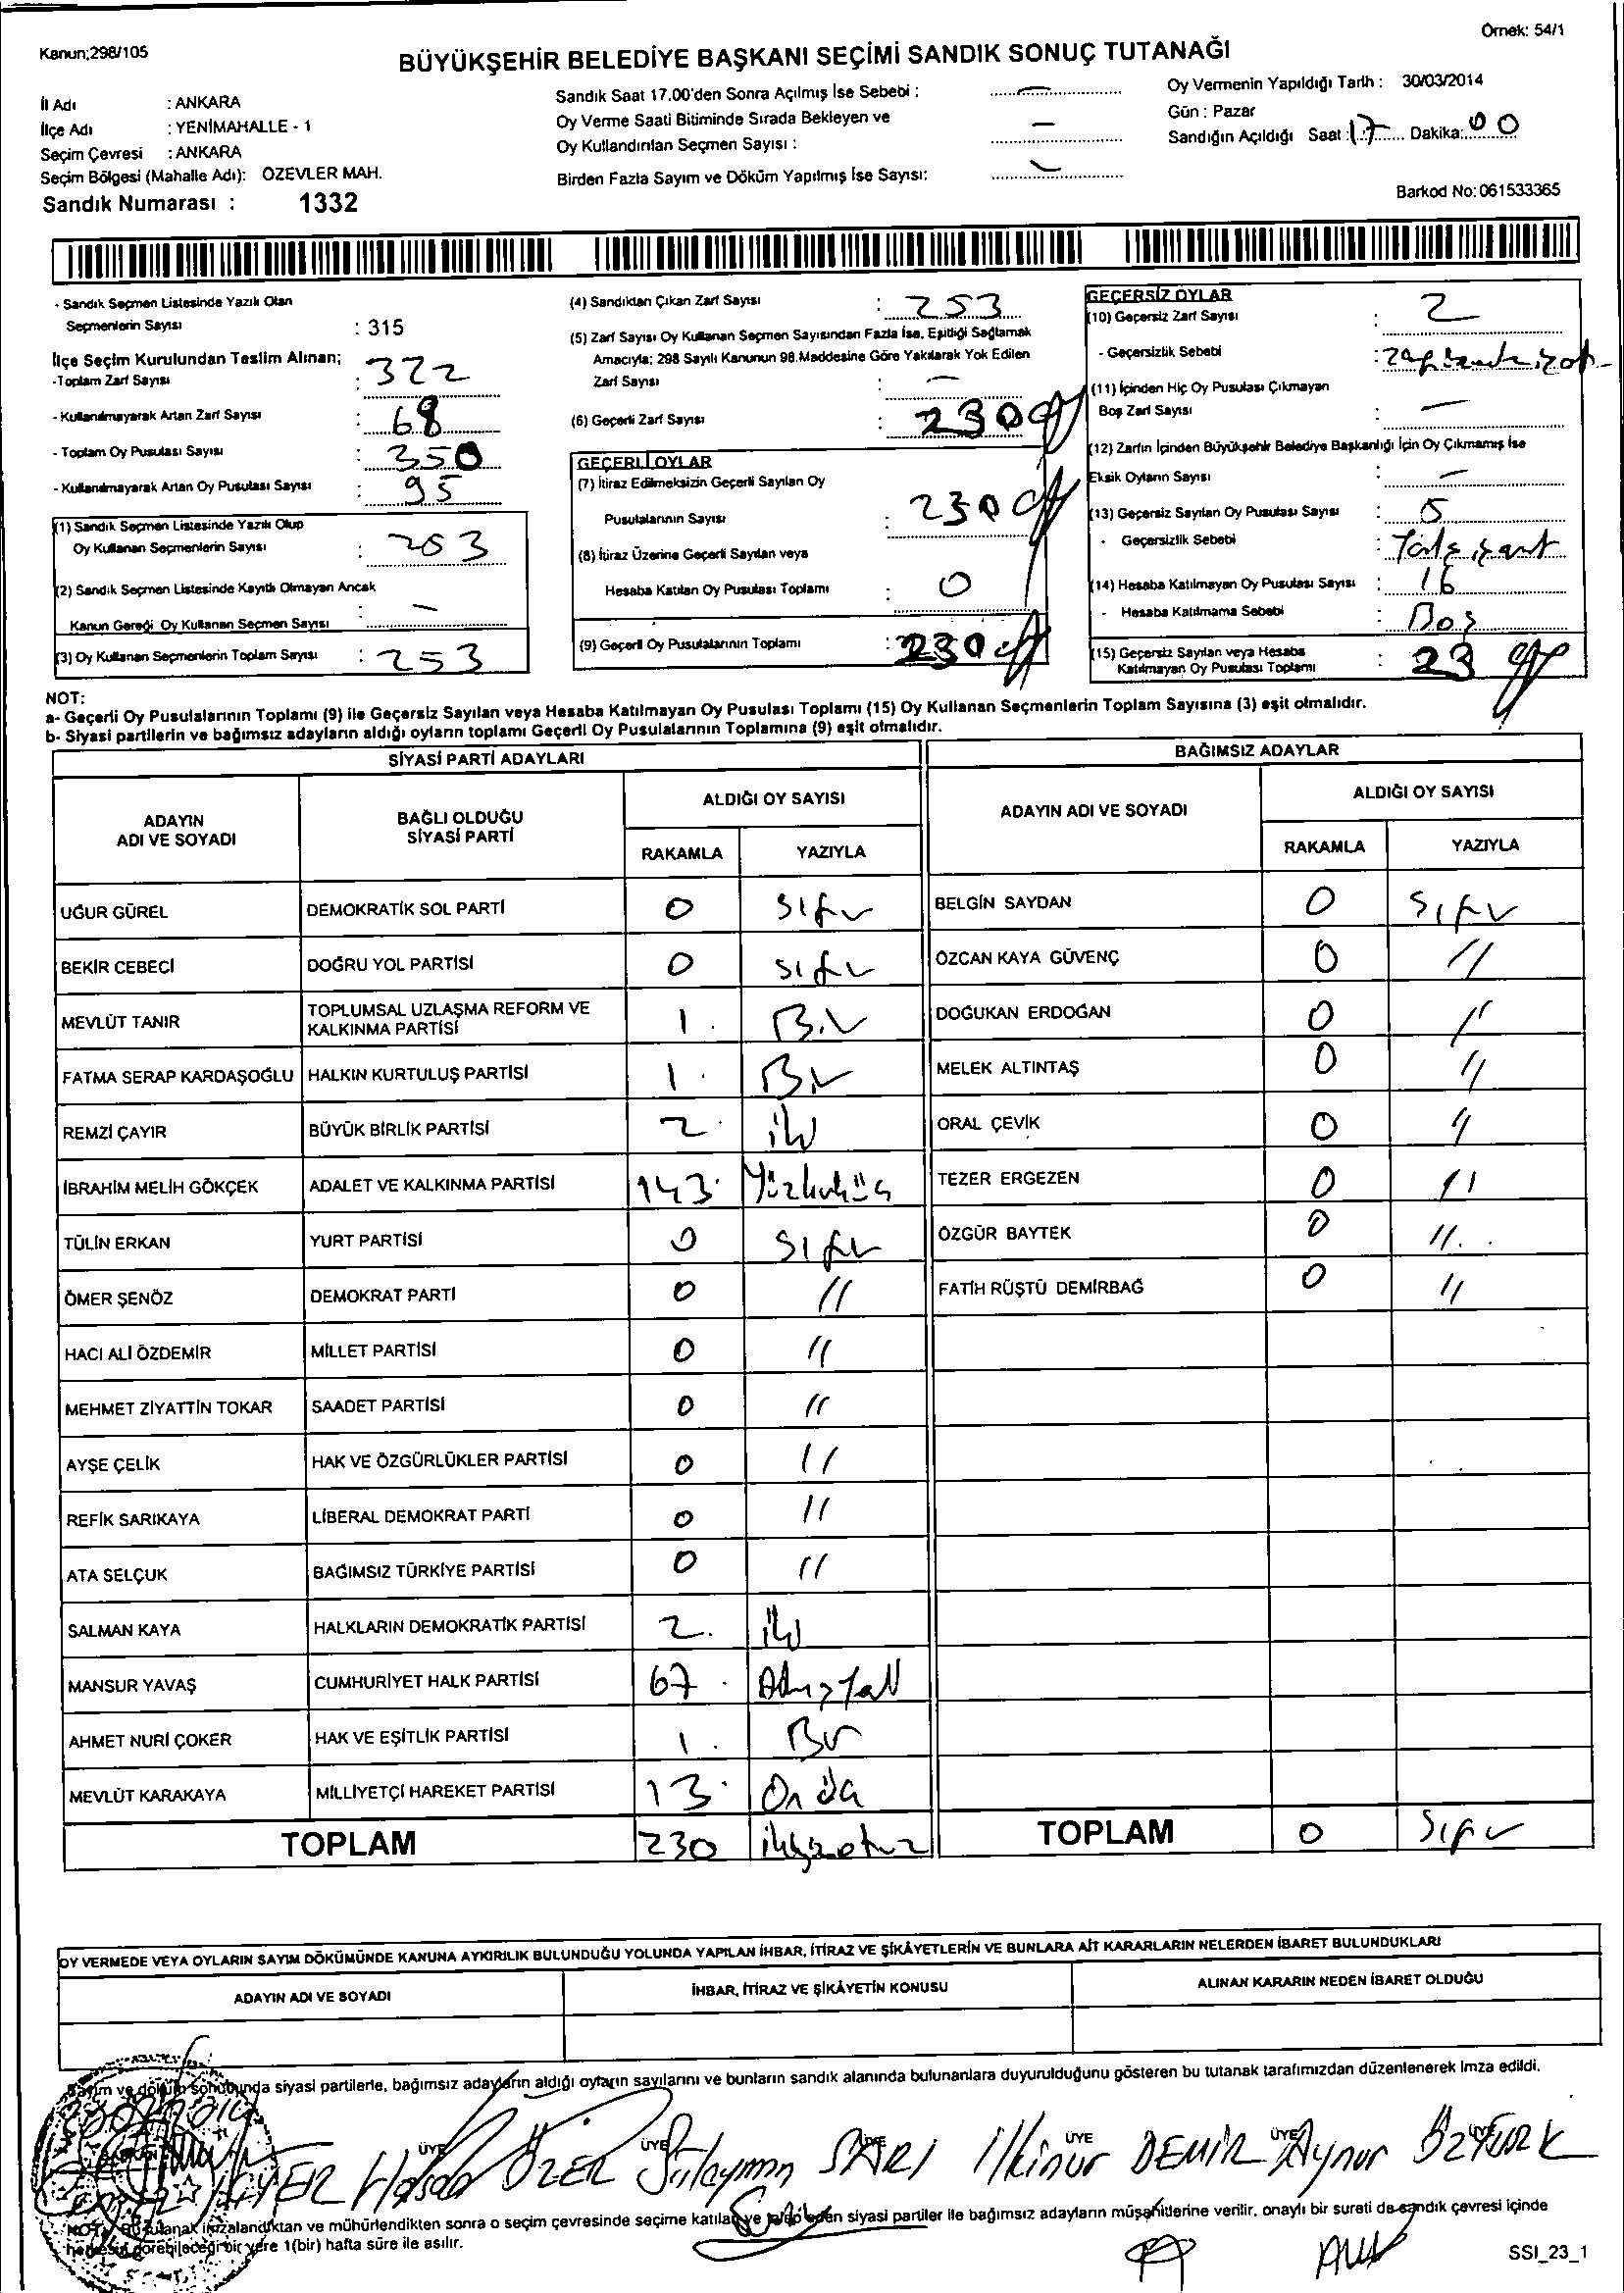 Örnek: 54/1
Kanun;298/105
BÜYÜKŞEHİR BELEDİYE BAŞKANI SEÇİMİ SANDIK SONUÇ TUTANAĞI
İl Adı : ANKARA
İlçe Adı : YENİMAHALLE - 1
Seçim Çevresi : ANKARA
Seçim Bölgesi (Mahalle Adı): ÖZEVLER MAH.
Sandık Numarası : 1332
Sandık Saat 17.00'den Sonra Açılmış İse Sebebi : —
Oy Verme Saati Bitiminde Sırada Bekleyen ve
Oy Kullandırılan Seçmen Sayısı : —
Birden Fazla Sayım ve Döküm Yapılmış İse Sayısı: —
Oy Vermenin Yapıldığı Tarih : 30/03/2014
Gün : Pazar
Sandığın Açıldığı Saat: 17 Dakika: 00
Barkod No: 061533365
- Sandık Seçmen Listesinde Yazılı Olan
Seçmenlerin Sayısı : 315
İlçe Seçim Kurulundan Teslim Alınan;
-Toplam Zarf Sayısı : 322
- Kullanılmayarak Artan Zarf Sayısı : 68
- Toplam Oy Pusulası Sayısı : 350
- Kullanılmayarak Artan Oy Pusulası Sayısı : 95
(1) Sandık Seçmen Listesinde Yazılı Olup
Oy Kullanan Seçmenlerin Sayısı : 253
(2) Sandık Seçmen Listesinde Kayıtlı Olmayan Ancak
Kanun Gereği Oy Kullanan Seçmen Sayısı : —
(3) Oy Kullanan Seçmenlerin Toplam Sayısı : 253
(4) Sandıktan Çıkan Zarf Sayısı : 253
(5) Zarf Sayısı Oy Kullanan Seçmen Sayısından Fazla İse, Eşitliği Sağlamak
Amacıyla; 298 Sayılı Kanunun 98.Maddesine Göre Yakılarak Yok Edilen
Zarf Sayısı : —
(6) Geçerli Zarf Sayısı : 230
GEÇERLİ OYLAR
(7) İtiraz Edilmeksizin Geçerli Sayılan Oy
Pusulalarının Sayısı : 230
(8) İtiraz Üzerine Geçerli Sayılan veya
Hesaba Katılan Oy Pusulası Toplamı : 0
(9) Geçerli Oy Pusulalarının Toplamı : 230
GEÇERSİZ OYLAR
(10) Geçersiz Zarf Sayısı : 2
- Geçersizlik Sebebi :
(11) İçinden Hiç Oy Pusulası Çıkmayan
Boş Zarf Sayısı : —
(12) Zarfın İçinden Büyükşehir Belediye Başkanlığı İçin Oy Çıkmamış İse
Eksik Oyların Sayısı : —
(13) Geçersiz Sayılan Oy Pusulası Sayısı : 5
- Geçersizlik Sebebi :
(14) Hesaba Katılmayan Oy Pusulası Sayısı : 16
- Hesaba Katılmama Sebebi : Boş
(15) Geçersiz Sayılan veya Hesaba
Katılmayan Oy Pusulası Toplamı : 23
NOT:
a- Geçerli Oy Pusulalarının Toplamı (9) ile Geçersiz Sayılan veya Hesaba Katılmayan Oy Pusulası Toplamı (15) Oy Kullanan Seçmenlerin Toplam Sayısına (3) eşit olmalıdır.
b- Siyasi partilerin ve bağımsız adayların aldığı oyların toplamı Geçerli Oy Pusulalarının Toplamına (9) eşit olmalıdır.
SİYASİ PARTİ ADAYLARI
ADAYIN ADI VE SOYADI BAĞLI OLDUĞU SİYASİ PARTİ ALDIĞI OY SAYISI
RAKAMLA YAZIYLA
UĞUR GÜREL DEMOKRATİK SOL PARTİ 0 Sıfır
BEKİR CEBECİ DOĞRU YOL PARTİSİ 0 Sıfır
MEVLÜT TANIR TOPLUMSAL UZLAŞMA REFORM VE KALKINMA PARTİSİ 1 Bir
FATMA SERAP KARDAŞOĞLU HALKIN KURTULUŞ PARTİSİ 1 Bir
REMZİ ÇAYIR BÜYÜK BİRLİK PARTİSİ 2 iki
İBRAHİM MELİH GÖKÇEK ADALET VE KALKINMA PARTİSİ 143 Yüzkırküç
TÜLİN ERKAN YURT PARTİSİ 0 Sıfır
ÖMER ŞENÖZ DEMOKRAT PARTİ 0 //
HACI ALİ ÖZDEMİR MİLLET PARTİSİ 0 //
MEHMET ZİYATTİN TOKAR SAADET PARTİSİ 0 //
AYŞE ÇELİK HAK VE ÖZGÜRLÜKLER PARTİSİ 0 //
REFİK SARIKAYA LİBERAL DEMOKRAT PARTİ 0 //
ATA SELÇUK BAĞIMSIZ TÜRKİYE PARTİSİ 0 //
SALMAN KAYA HALKLARIN DEMOKRATİK PARTİSİ 2 iki
MANSUR YAVAŞ CUMHURİYET HALK PARTİSİ 67 Altmışyedi
AHMET NURİ ÇOKER HAK VE EŞİTLİK PARTİSİ 1 Bir
MEVLÜT KARAKAYA MİLLİYETÇİ HAREKET PARTİSİ 13 Onüç
TOPLAM 230 ikiyüzotuz
BAĞIMSIZ ADAYLAR
ADAYIN ADI VE SOYADI ALDIĞI OY SAYISI
RAKAMLA YAZIYLA
BELGİN SAYDAN 0 Sıfır
ÖZCAN KAYA GÜVENÇ 0 //
DOĞUKAN ERDOĞAN 0 //
MELEK ALTINTAŞ 0 //
ORAL ÇEVİK 0 //
TEZER ERGEZEN 0 //
ÖZGÜR BAYTEK 0 //
FATİH RÜŞTÜ DEMİRBAĞ 0 //
TOPLAM 0 Sıfır
OY VERMEDE VEYA OYLARIN SAYIM DÖKÜMÜNDE KANUNA AYKIRILIK BULUNDUĞU YOLUNDA YAPILAN İHBAR, İTİRAZ VE ŞİKÂYETLERİN VE BUNLARA AİT KARARLARIN NELERDEN İBARET BULUNDUKLARI
ADAYIN ADI VE SOYADI İHBAR, İTİRAZ VE ŞİKÂYETİN KONUSU ALINAN KARARIN NEDEN İBARET OLDUĞU
Sayım ve döküm sonucunda siyasi partilerle, bağımsız adayların aldığı oyların sayılarını ve bunların sandık alanında bulunanlara duyurulduğunu gösteren bu tutanak tarafımızdan düzenlenerek imza edildi.
ÜYE ÜYE ÜYE ÜYE ÜYE
Hasan ÖZER Süleyman SARI İlkinur DEMİR Aynur ÖZTÜRK
NOT: Bu tutanak imzalandıktan ve mühürlendikten sonra o seçim çevresinde seçime katılan ve talep eden siyasi partiler ile bağımsız adayların müşahitlerine verilir, onaylı bir sureti de sandık çevresi içinde
herkesin görebileceği bir yere 1(bir) hafta süre ile asılır.
SSI_23_1